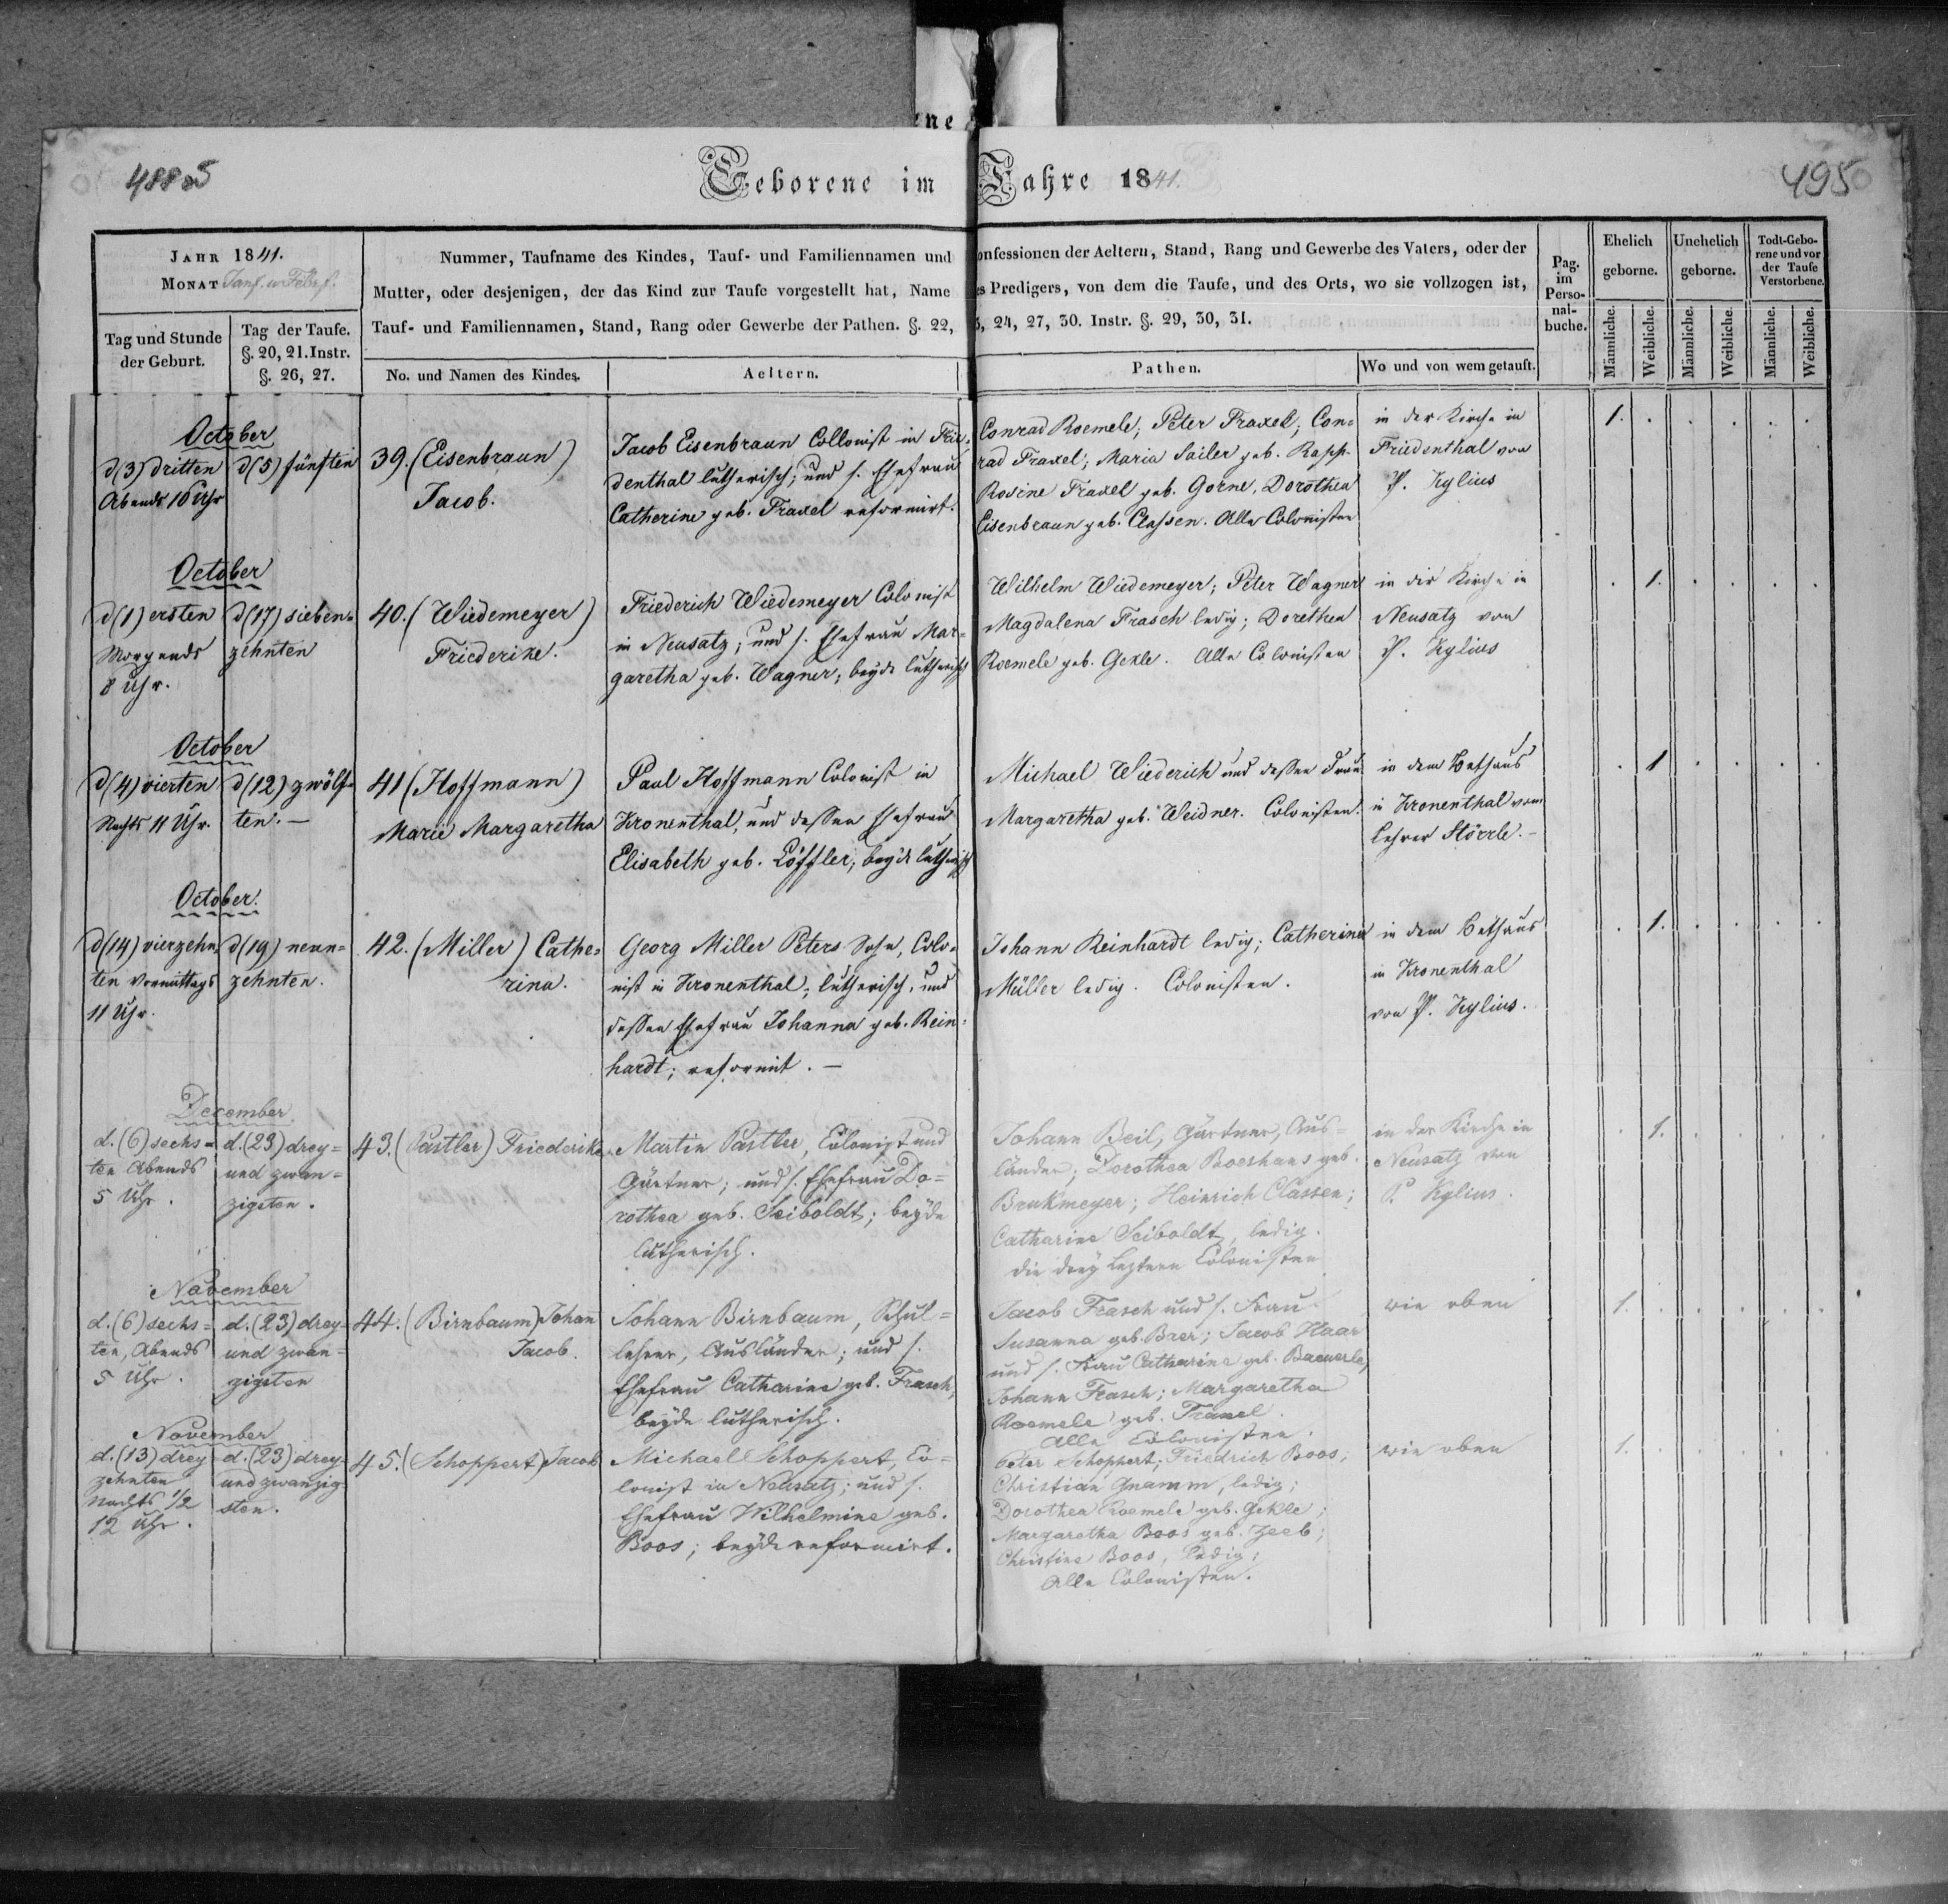 ne
488 495
Geborene im Jahre 1841.
JAHR 1841.
MONAT
Nummer, Taufname des Kindes, Tauf- und Familiennamen und onfessionen der Aeltern, Stand, Rang und Gewerbe des Vaters, oder der
Mutter, oder desjenigen, der das Kind zur Taufe vorgestellt hat, Name es Predigers, von dem die Taufe, und des Orts, wo sie vollzogen ist,
Tauf- und Familiennamen, Stand, Rang oder Gewerbe der Pathen. §. 22, 3, 24, 27, 30. Instr. §. 29, 30, 31.
Tag und Stunde
der Geburt.
Tag der Taufe.
§. 20, 21. Instr.
§. 26, 27.
No. und Namen des Kindes.
Aeltern.
Pathen.
Wo und von wem getauft.
Pag.
im
Perso-
nal-
buche.
Ehelich
geborne.
Unehelich
geborne.
Todt-Gebo-
rene und vor
der Taufe
Verstorbene.
Männliche.
Weibliche.
Männliche.
Weibliche.
Männliche.
Weibliche.
October
d(3) dritten
Abends 10 Uhr
d(5) fünften
39. (Eisenbraun)
Jacob.
Jacob Eisenbraun Collonist in Frie-
denthal lutherisch; und s. Ehefrau
Catherine geb. Fraxel reformirt.
Conrad Roemele; Peter Fraxel; Con-
rad Fraxel; Maria Sailer geb. Rapp.
Rosine Fraxel geb. Gorne. Dorothea
Eisenbraun geb. Classen. Alle Colonisten
in der Kirche in
Friedenthal von
P. Kylius
1.
October
d(1) ersten
Morgends
8 Uhr.
d(17) sieben-
zehnten
40. (Wiedemeyer)
Friederike.
Friederich Wiedemeyer Colonist
in Neusatz; und s. Ehefrau Mar-
garetha geb. Wagner; beyde lutherisch
Wilhelm Wiedemeyer; Peter Wagner
Magdalena Frasch ledig; Dorethea
Roemele geb. Gekle. Alle Colonisten
in der Kirche in
Neusatz von
P. Kylius
1.
October
d(4) vierten
Nachts 11 Uhr.
d(12) zwölf-
ten. —
41 (Hoffmann)
Marie Margaretha
Paul Hoffmann Colonist in
Kronenthal, und dessen Ehefrau
Elisabeth geb. Löffler; beyde lutherisch
Michael Wiederich und dessen Frau
Margaretha geb. Weidner. Colonisten.
in dem Bethaus
in Kronenthal vom
Lehrer Störrle. —
1
October.
d(14) vierzehn-
ten vormittags
11 Uhr.
d(19) neun-
zehnten.
42. (Miller) Cathe-
rina.
Georg Miller Peters Sohn, Colo-
nist in Kronenthal; lutherisch, und
dessen Ehefrau Johanna geb. Rein-
hardt; reformirt. —
Johann Reinhardt ledig; Catherina
Müller ledig. Colonisten.
in dem Bethaus
in Kronenthal
von P. Kylius.
1.
December
d. (6) sechs-
ten Abends
5 Uhr.
d. (23) drey-
und zwan-
zigsten.
43. (Pastler) Friederike
Martin Pastler, Colonist und
Gärtner; und s. Ehefrau Do-
rothea geb. Seiboldt; beyde
lutherisch.
Johann Beil, Gärtner, Aus-
länder; Dorothea Boeshans geb.
Brukmeyer; Heinrich Classen;
Catharina Seiboldt, ledig.
die drey leztern Colonisten
in der Kirche in
Neusatz von
P. Kylius.
1.
November
d. (6) sechs-
ten, Abends
5 Uhr.
d. (23) drey-
und zwan-
zigsten
44. (Birnbaum) Johan
Jacob.
Johann Birnbaum, Schul-
lehrer, Ausländer; und s.
Ehefrau Catharina geb. Frasch,
beyde lutherisch.
Jacob Frasch und s. Frau
Susanna geb. Brer; Jacob Haar
und s. Frau Catharina geb. Baeuerle,
Johann Frasch; Margaretha
Roemele geb. Fraxel.
Alle Colonisten.
wie oben
1.
November
d. (13) drey-
zehnten
Nachts 1/2
12 Uhr.
d. (23) drey-
und zwanzig-
sten.
45. (Schoppert) Jacob
Michael Schoppert, Co-
lonist in Neusatz; und s.
Ehefrau Wilhelmine geb.
Boos; beyde reformirt.
Peter Schoppert; Friedrich Boos;
Christian Gnamm, ledig;
Dorothea Roemele geb. Gekle;
Margaretha Boos geb. Zeeb;
Christine Boos, ledig;
Alle Colonisten.
wie oben
1.